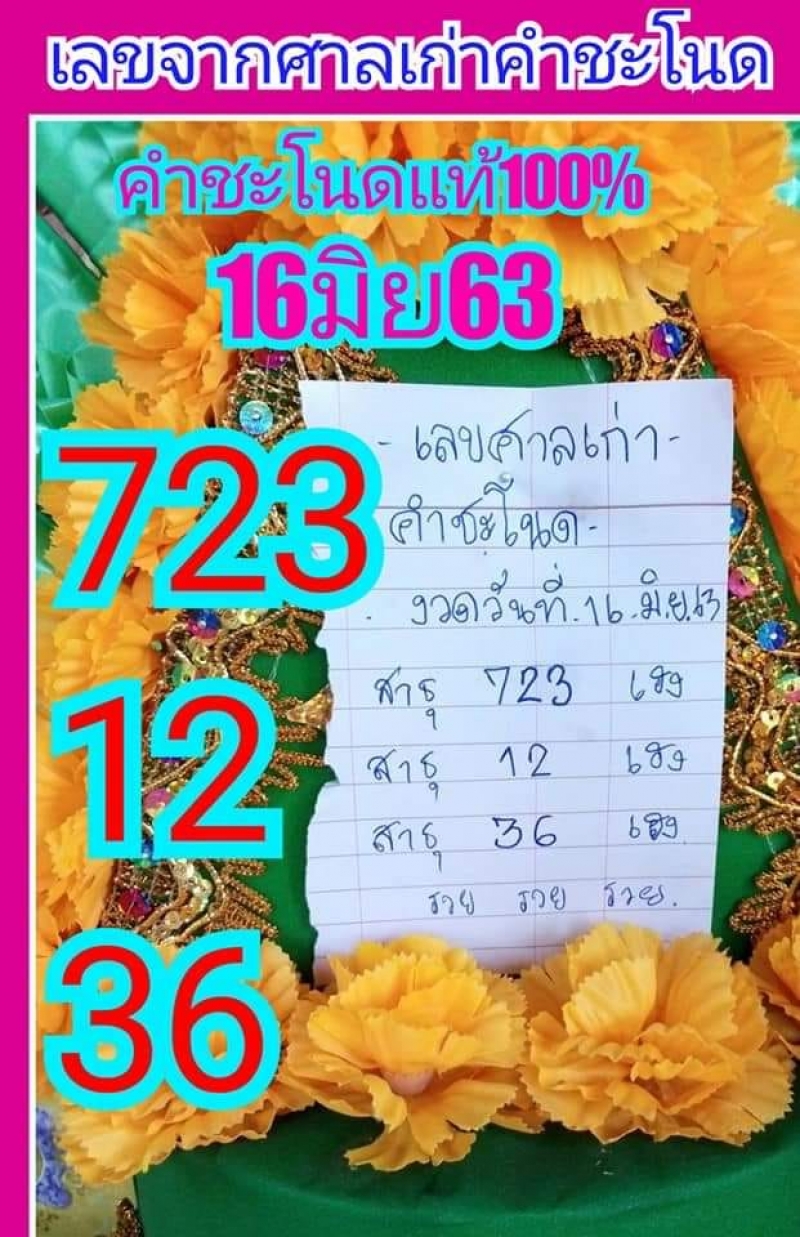 เลขจากศาลเก่าคำชะโนด
คำชะโนดแท้100%
16มิย63
723
12
36
- เลขศาลเก่า -
คำชะโนด -
. งวดวันที่.16.มิ.ย.63
สาธุ 723 เฮง
สาธุ 12 เฮง
สาธุ 36 เฮง.
รวย รวย รวย.